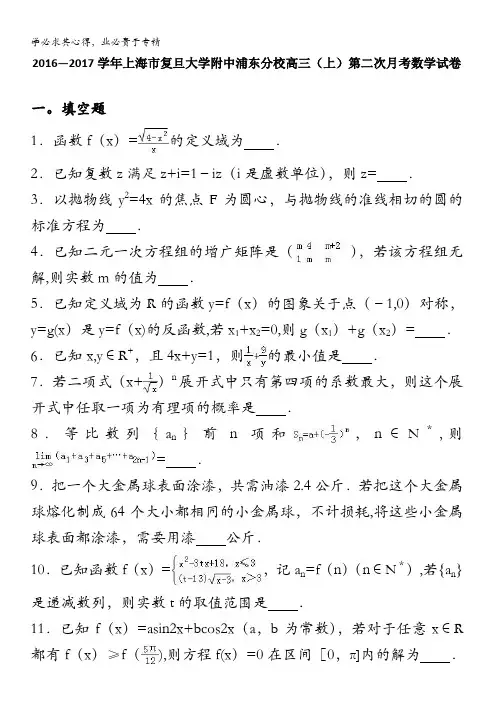 学必求其心得，业必贵于专精
2016—2017学年上海市复旦大学附中浦东分校高三（上）第二次月考数学试卷
一。填空题
1．函数f（x）=√(4-x²)/x的定义域为　　．
2．已知复数z满足z+i=1﹣iz（i是虚数单位），则z=　　．
3．以抛物线y²=4x的焦点F为圆心，与抛物线的准线相切的圆的
标准方程为　　．
4．已知二元一次方程组的增广矩阵是（m 4 m+2
1 m m），若该方程组无
解,则实数m的值为　　．
5．已知定义域为R的函数y=f（x）的图象关于点（﹣1,0）对称，
y=g(x）是y=f（x)的反函数,若x₁+x₂=0,则g（x₁）+g（x₂）=　　．
6．已知x,y∈R⁺，且4x+y=1，则1/x+9/y的最小值是　　．
7．若二项式（x+1/√x）ⁿ展开式中只有第四项的系数最大，则这个展
开式中任取一项为有理项的概率是　　．
8．等比数列{aₙ}前n项和Sₙ=a+(-1/3)ⁿ，n∈N*,则
lim n→∞ (a₁+a₃+a₅+…+a₂ₙ₋₁)=　　．
9．把一个大金属球表面涂漆，共需油漆2.4公斤．若把这个大金属
球熔化制成64个大小都相同的小金属球，不计损耗,将这些小金属
球表面都涂漆，需要用漆　　公斤．
10．已知函数f（x）={x²-3tx+18，x≤3
(t-13)√(x-3)，x>3，记aₙ=f（n）（n∈N*）,若{aₙ}
是递减数列，则实数t的取值范围是　　．
11．已知f（x）=asin2x+bcos2x（a，b为常数），若对于任意x∈R
都有f（x）≥f（5π/12),则方程f(x）=0在区间［0，π]内的解为　　．